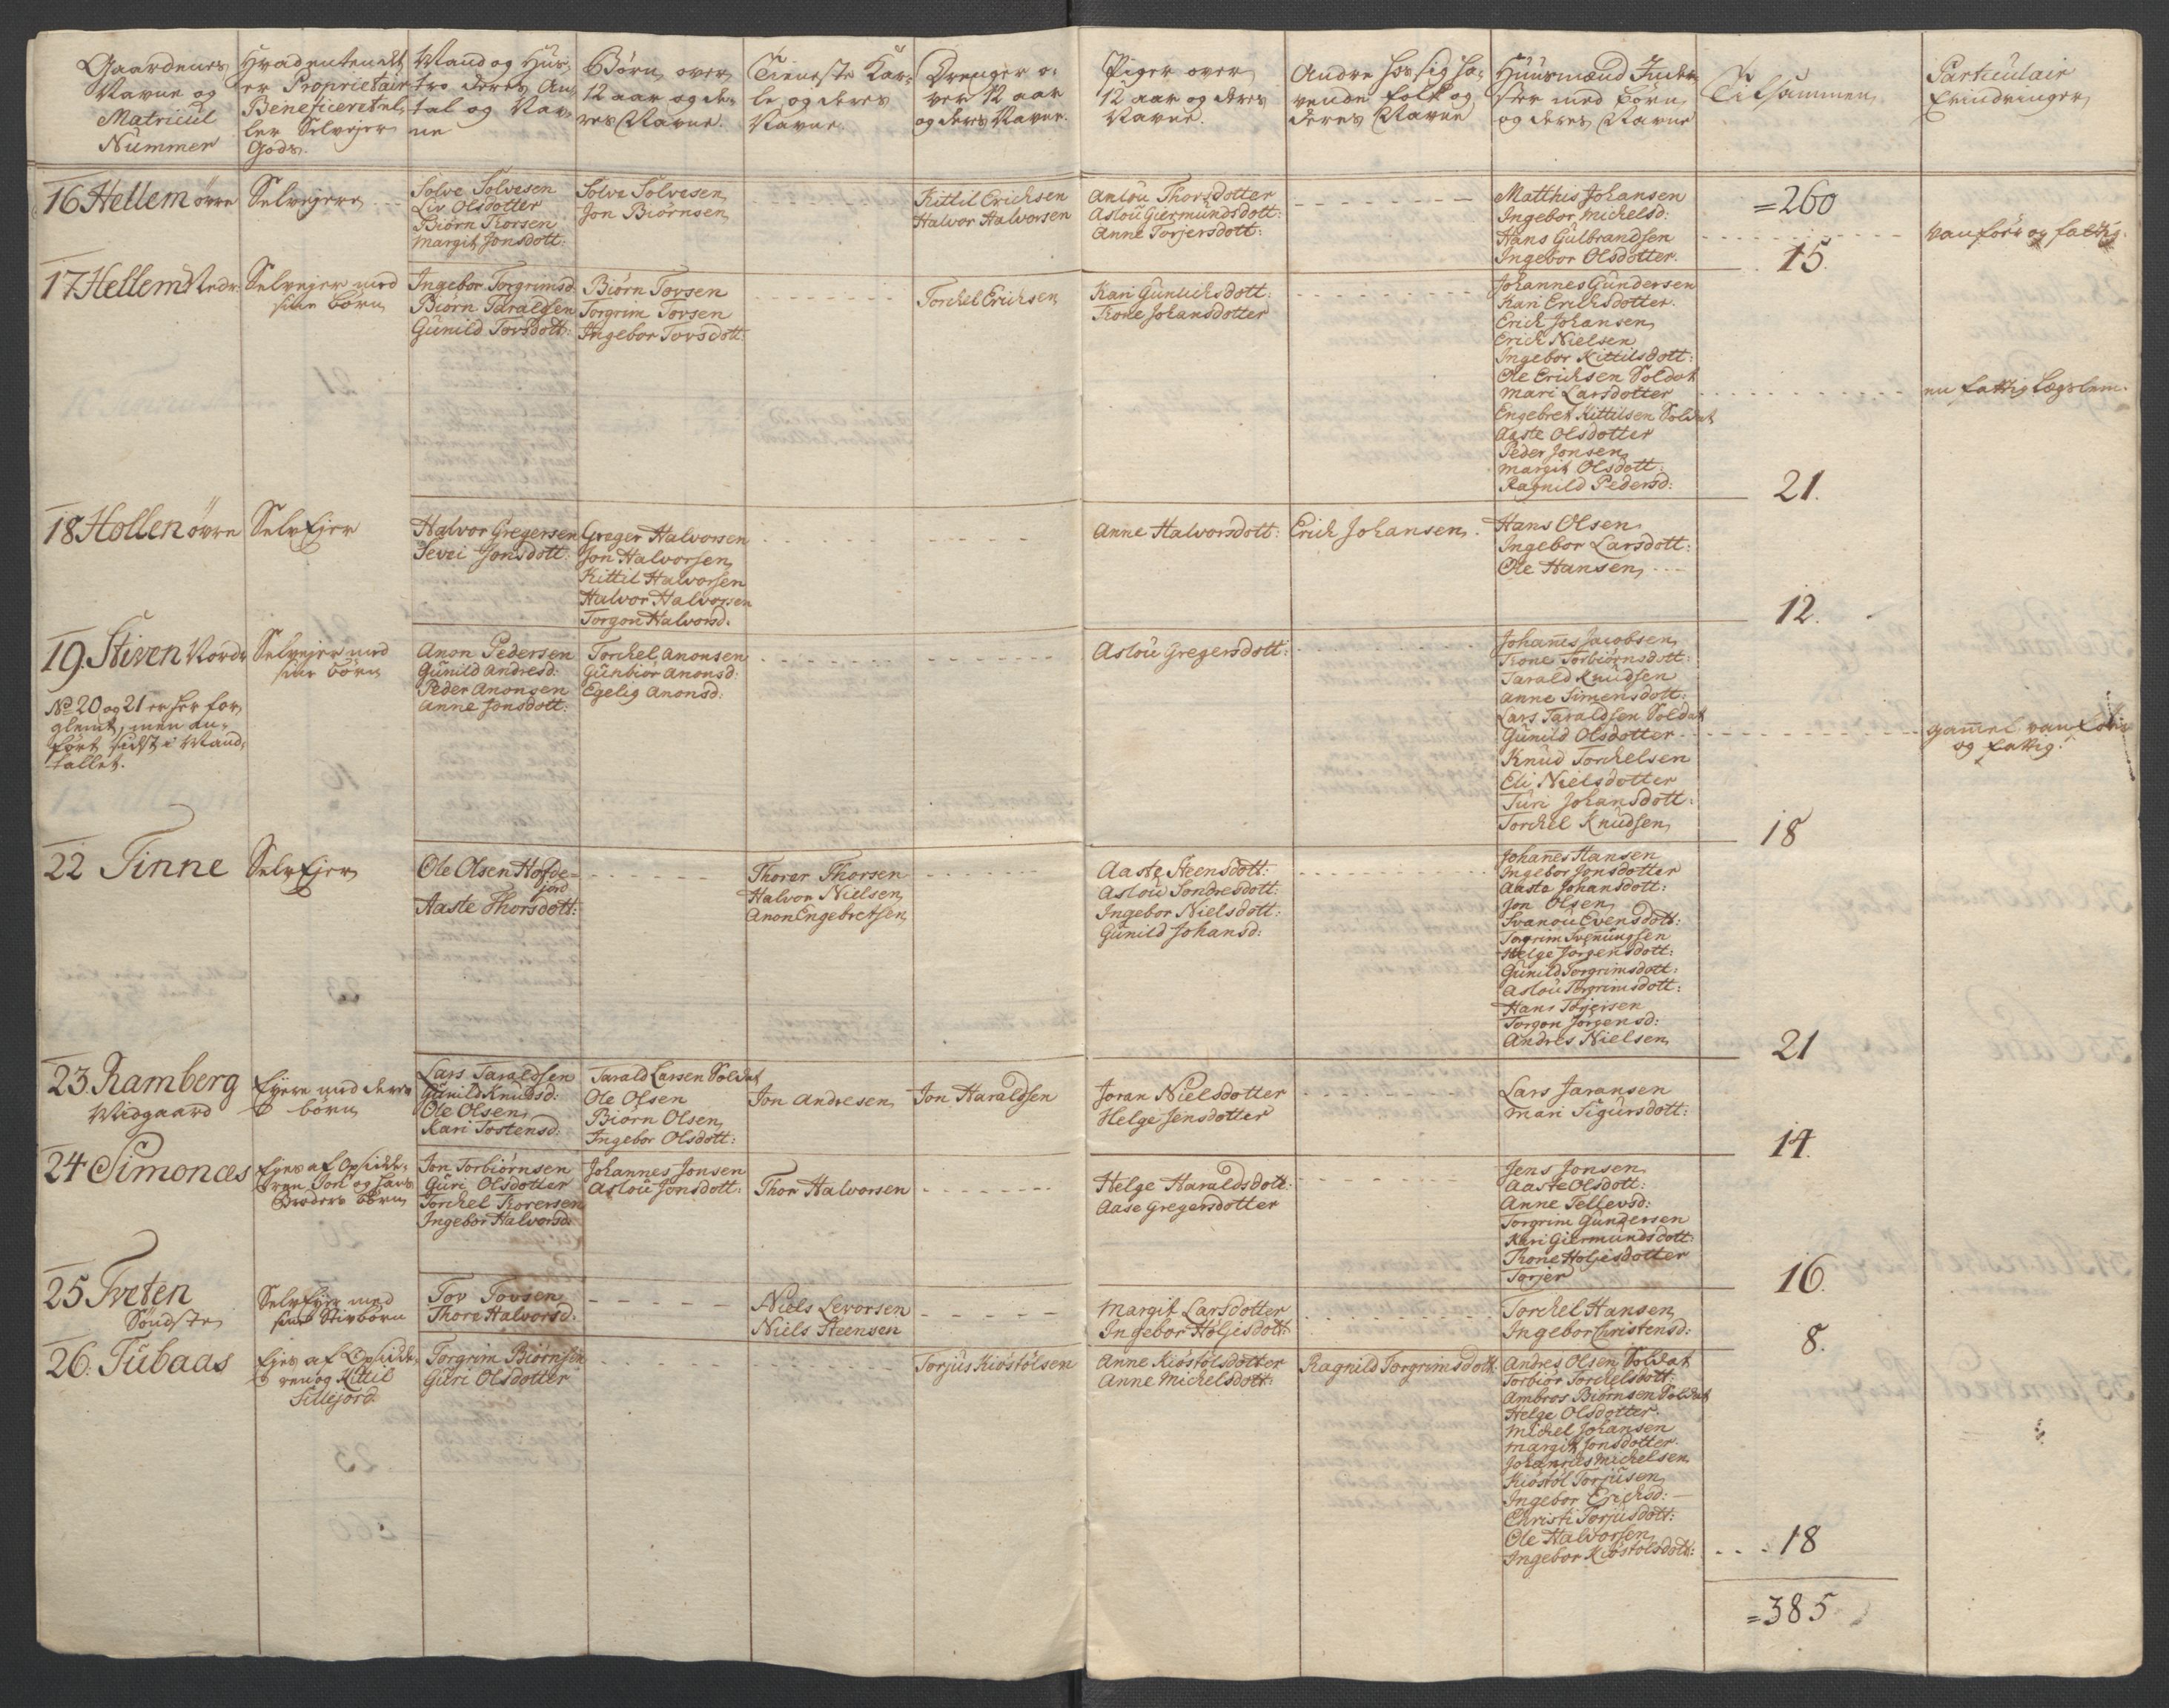 Gaardenes
Navne og
Matricul
Nummer
Hvadentendt
er Proprietair
Beneficeret el-
ler Selvejer
Gods.
Mand og Hus-
tro deres An-
tal og Nav-
ne
Børn over
12 aar og de-
res Navne.
Tieneste Kar-
le og deres
Navne.
Drenger o-
ver 12 aar
og deres Navne.
Piger over
12 aar og deres
Navne.
Andre hos sig ha-
vende folk og
deres Navne
Huusmænd Inder-
ster med børn
og deres Navne
Tilsammen
Particulair
Erindringer
16 Hellem øvre
Selvejere
Solve Solvesen
Liv Olsdotter
Biörn Torsen
Margit Jonsdott:
Solve Solvesen
Jon Biörnsen
Kittil Erichsen
Halvor Halvorsen
Anlou Thorsdotter
Aslou Giermundsdott:
Anne Torjersdott:
Matthis Johansen
Ingebor Michelsd:
Hans Gulbrandsen
Ingebor Olsdotter.
=260
15.
vanför og fattig.
17 Hellem Nedr:
Selvejer med
sine børn
Ingebor Torgrimsd:
Biörn Taraldsen
Gunild Torsdott:
Biörn Tovsen
Torgrim Tovsen
Ingebor Tovsdott:
Torchel Erichsen
Kari Gunlichsdott:
Trone Johansdotter
Johannes Gundersen
Kari Erichsdotter.
Erich Johansen
Erich Nielsen
Ingebor Kittilsdott:
Ole Erichsen Soldat
Mari Larsdotter
Engebret Kittilsen Soldat
Aaste Olsdotter
Peder Jonsen
Margit Olsdott
Ragnild Pedersd:
21.
en fattig Lægslem.
18 Hollen øvre
SelvEjer
Halvor Gregersen
Sevei Jonsdott:
Greger Halvorsen
Jon Halvorsen
Kittil Halvorsen
Halvor Halvorsen
Torgon Halvorsd.
Anne Halvorsdott:
Erich Johansen.
Hans Olsen
Ingebor Larsdott:
Ole Hansen
12.
19. Stiven Nordr
Selvejer med
sine børn
No 20 og 21 er her for
glemt, men an-
ført sidst i Mand-
tallet.
Anon Pedersen
Gunild Andresd:
Peder Anonsen
Anne Jonsdott:
Torchel Anonsen
Gunbior Anonsd:
Egelig Anonsd:
Aslou Gregersdott:
Johannes Jacobsen
Trone Torbiörnsdott:
Tarald Knudsen
Anne Simensdott:
Lars Taraldsen Soldat
Gunild Olsdotter
Knud Torchelsen
Eli Nielsdotter
Turi Johansdott:
Torchel Knudsen
18
gammel vanför
og fattig.
22 Tinne
SelvEjer
Ole Olsen Hofde-
jord
Aaste Thorsdott:
Thorer Thorsen
Halvor Nielsen
Anon Engebretsen
Aaste Steensdott:
Aslou Sondresdott:
Ingebor Nielsdott:
Gunild Johansd:
Johannes Hansen
Ingebor Jonsdotter
Aaste Johansdott:
Jon Olsen
Svanou Evensdott:
Torgrim Svenungsen
Helge Jorgensdott:
Gunild Torgrimsdott:
Aslou Torgrimsdott:
Hans Torjersen
Torgon Jörgensd:
Andres Nielsen
21
23. Ramberg
Midgaard
Ejere med deres
børn
Lars Taraldsen
Gunild Knudsd:
Ole Olsen
Kari Tostensd:
Tarald Larsen Soldat
Ole Olsen
Biorn Olsen
Ingebor Olsdott:
Jon Andresen
Jon Haraldsen
Joran Nielsdotter
Helge Jensdotter
Lars Jaransen
Mari Sigursdott:
14.
24 Simonæs
Ejes af Opsidde-
ren Jon og hans
Broders børn
Jon Torbiörnsen
Guri Olsdotter
Torchel Torersen
Ingebor Halvorsd.
Johannes Jonsen
Aslou Jonsdott:
Thor Halvorsen
Helge Haraldsdott:
Aase Gregersdotter
Jens Jonsen
Aaste Olsdott:
Anne Tellevsd:
Torgrim Gundersen
Kari Giermundsdott:
Trone Holjesdotter
Torjer
16.
25 Tveten
Söndste
SelvEjer med
sine Stivbørn
Tov Tovsen
Thore Halvorsd.
Niels Levorsen
Niels Steensen
Margit Larsdotter
Ingebor Holjesdott:
Torchel Hansen
Ingebor Christensd:
8.
26. Tubaas
Ejes af Opsidde-
ren og Kittil
Sillejord
Torgrim Biörnsen
Guri Olsdotter
Torjus Kiöstölsen
Anne Kiöstölsdotter
Anne Michelsdott:
Ragnild Torgrimsdott:
Andres Olsen Soldat
Torbior Torchelsdott:
Ambros Biörnsen Soldat
Helge Olsdotter.
Michel Johansen
Margit Jonsdotter.
Johannes Michelsen
Kiöstöl Torjusen
Ingebor Erichsd:
Christi Torjusdott:
Ole Halvorsen
Ingebor Kiöstolsdott:
18
=385